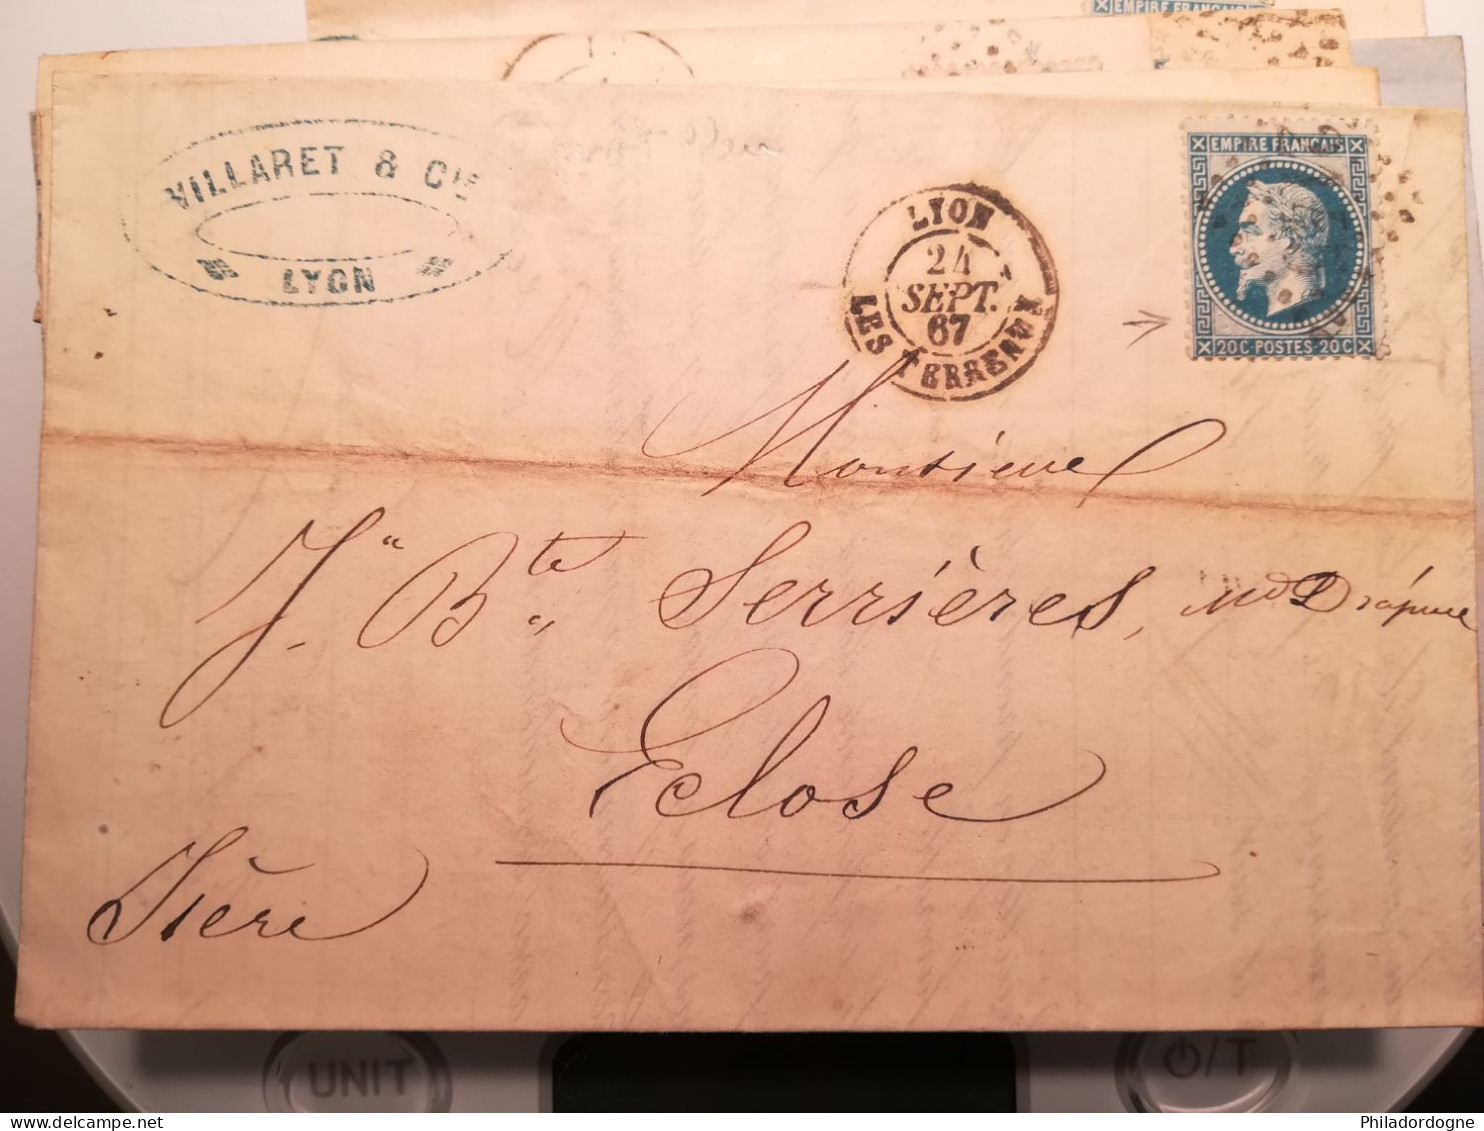 EMPIRE FRANÇAIS
VILLARET & Cie
LYON
LYON
24
SEPT.
67
LES TERREAUX
EMPIRE FRANÇAIS
20C·POSTES·20C
Monsieur
J.n Bte Serrières, Md Drapier
Eclose
Isère
UNIT
/T
Philadordogne